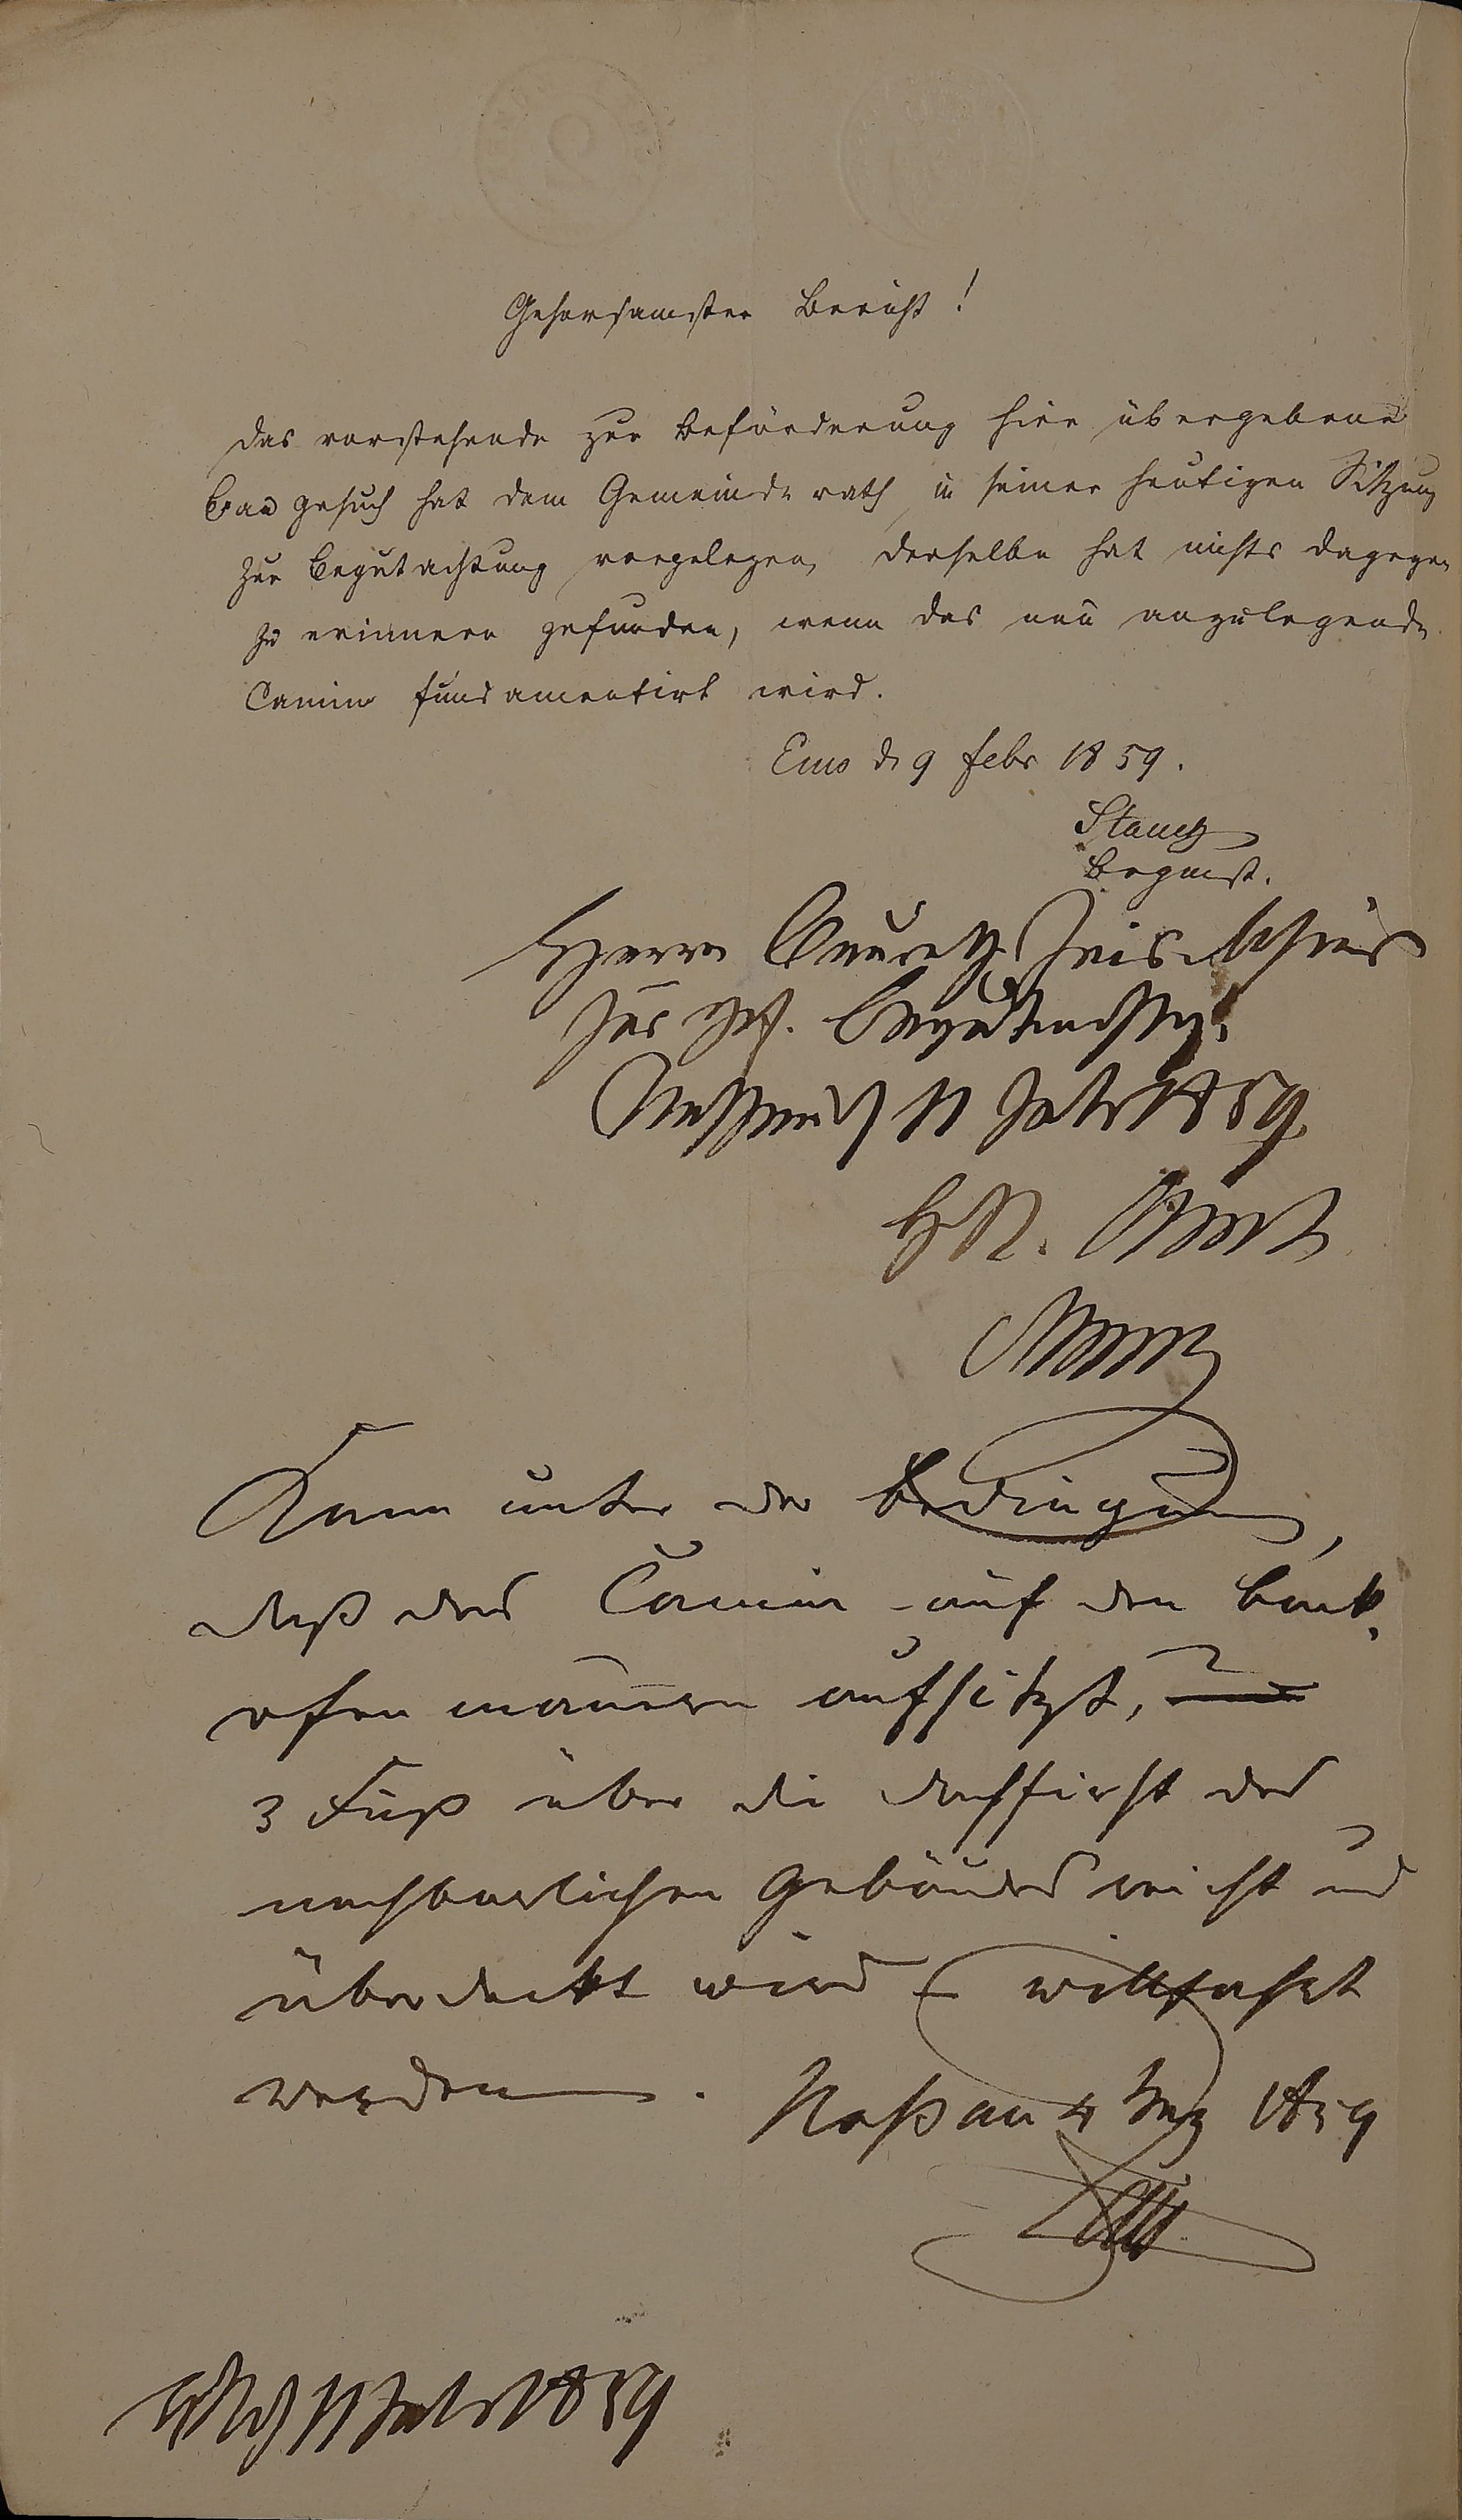 Gehorsamster Bericht!
Das vorstehende zur Beförderung hier übergebene
Baugesuch hat dem Gemeinderath in seiner heutigen Sitzung
zur Begutachtung vorgelegen, derselbe hat nichts dagegen
zu erinnern gefunden, wenn das neu anzulegende
Camin fundamentirt wird.
Ems d 9 Febr 1859.
Brgmst.
Herrn
zur gef. Begutachtg.
Nassau 11 Febr 1859
Kann unter der Bedingung,
daß das Camin auf den Back-
ofen mauern aufsitzt,
3 Fuß über die Dachfirst des
nachbarlichen Gebäudes reicht und
überdeckt wird – willfahrt
werden. Naßau 4 Mrz 1859
11 Febr 1859